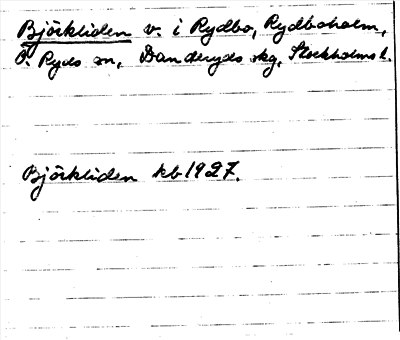 Björkliden v. i Rydbo, Rydboholm,
Ö. Ryds sn, Danderyds skg, Stockholms l.
Björkliden kb 1927.